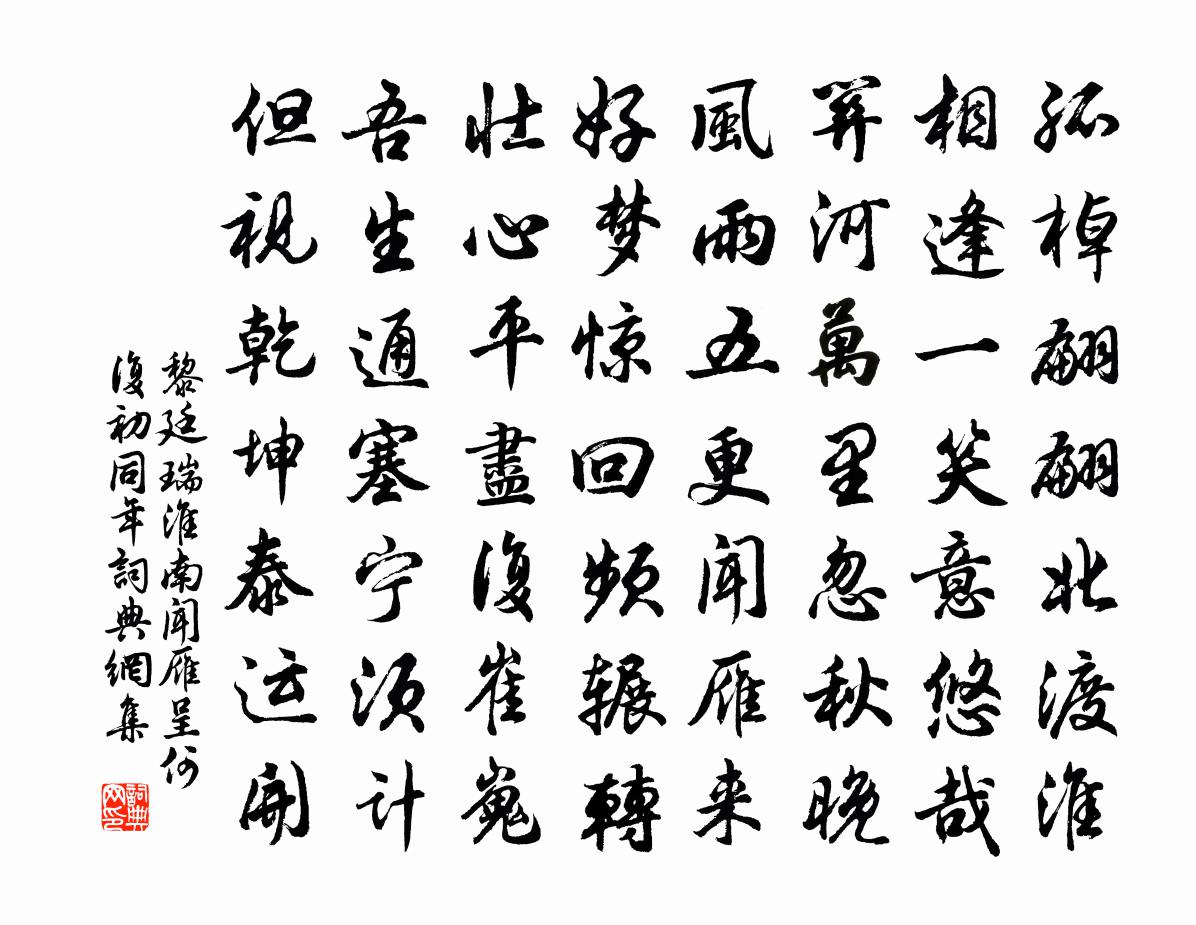 孤棹翩翩北渡淮
相逢一笑意悠哉
關河萬里忽秋晚
風雨五更聞雁来
好梦惊回频辗轉
壮心平盡復崔嵬
吾生通塞宁须计
但視乾坤泰运開
黎廷瑞淮南聞雁呈何
復初同年詞典網集
詞典
网印